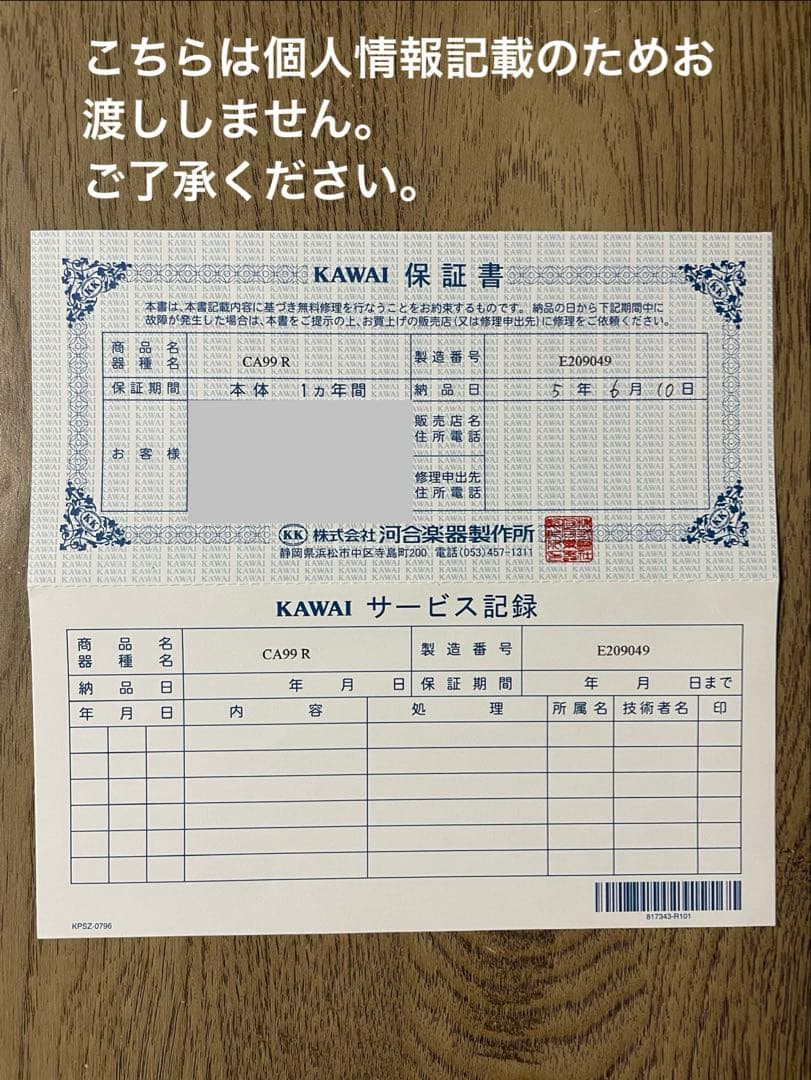 こちらは個人情報記載のためお
渡ししません。
ご了承ください。
KAWAI 保証書
本書は、本書記載内容に基づき無料修理を行なうことをお約束するものです。納品の日から下記期間中に
故障が発生した場合は、本書をご提示の上、お買上げの販売店(又は修理申出先)に修理をご依頼ください。
商品名
器種名 CA99 R 製造番号 E209049
保証期間 本体 1ヵ年間 納品日 5年 6月 10日
お客様
販売店名
住所電話
修理申出先
住所電話
KK 株式会社 河合楽器製作所
静岡県浜松市中区寺島町200 電話(053)457-1311
KAWAI サービス記録
商品名
器種名 CA99 R 製造番号 E209049
納品日 年 月 日 保証期間 年 月 日まで
年 月 日 内容 処理 所属名 技術者名 印
817343-R101
KPSZ-0796